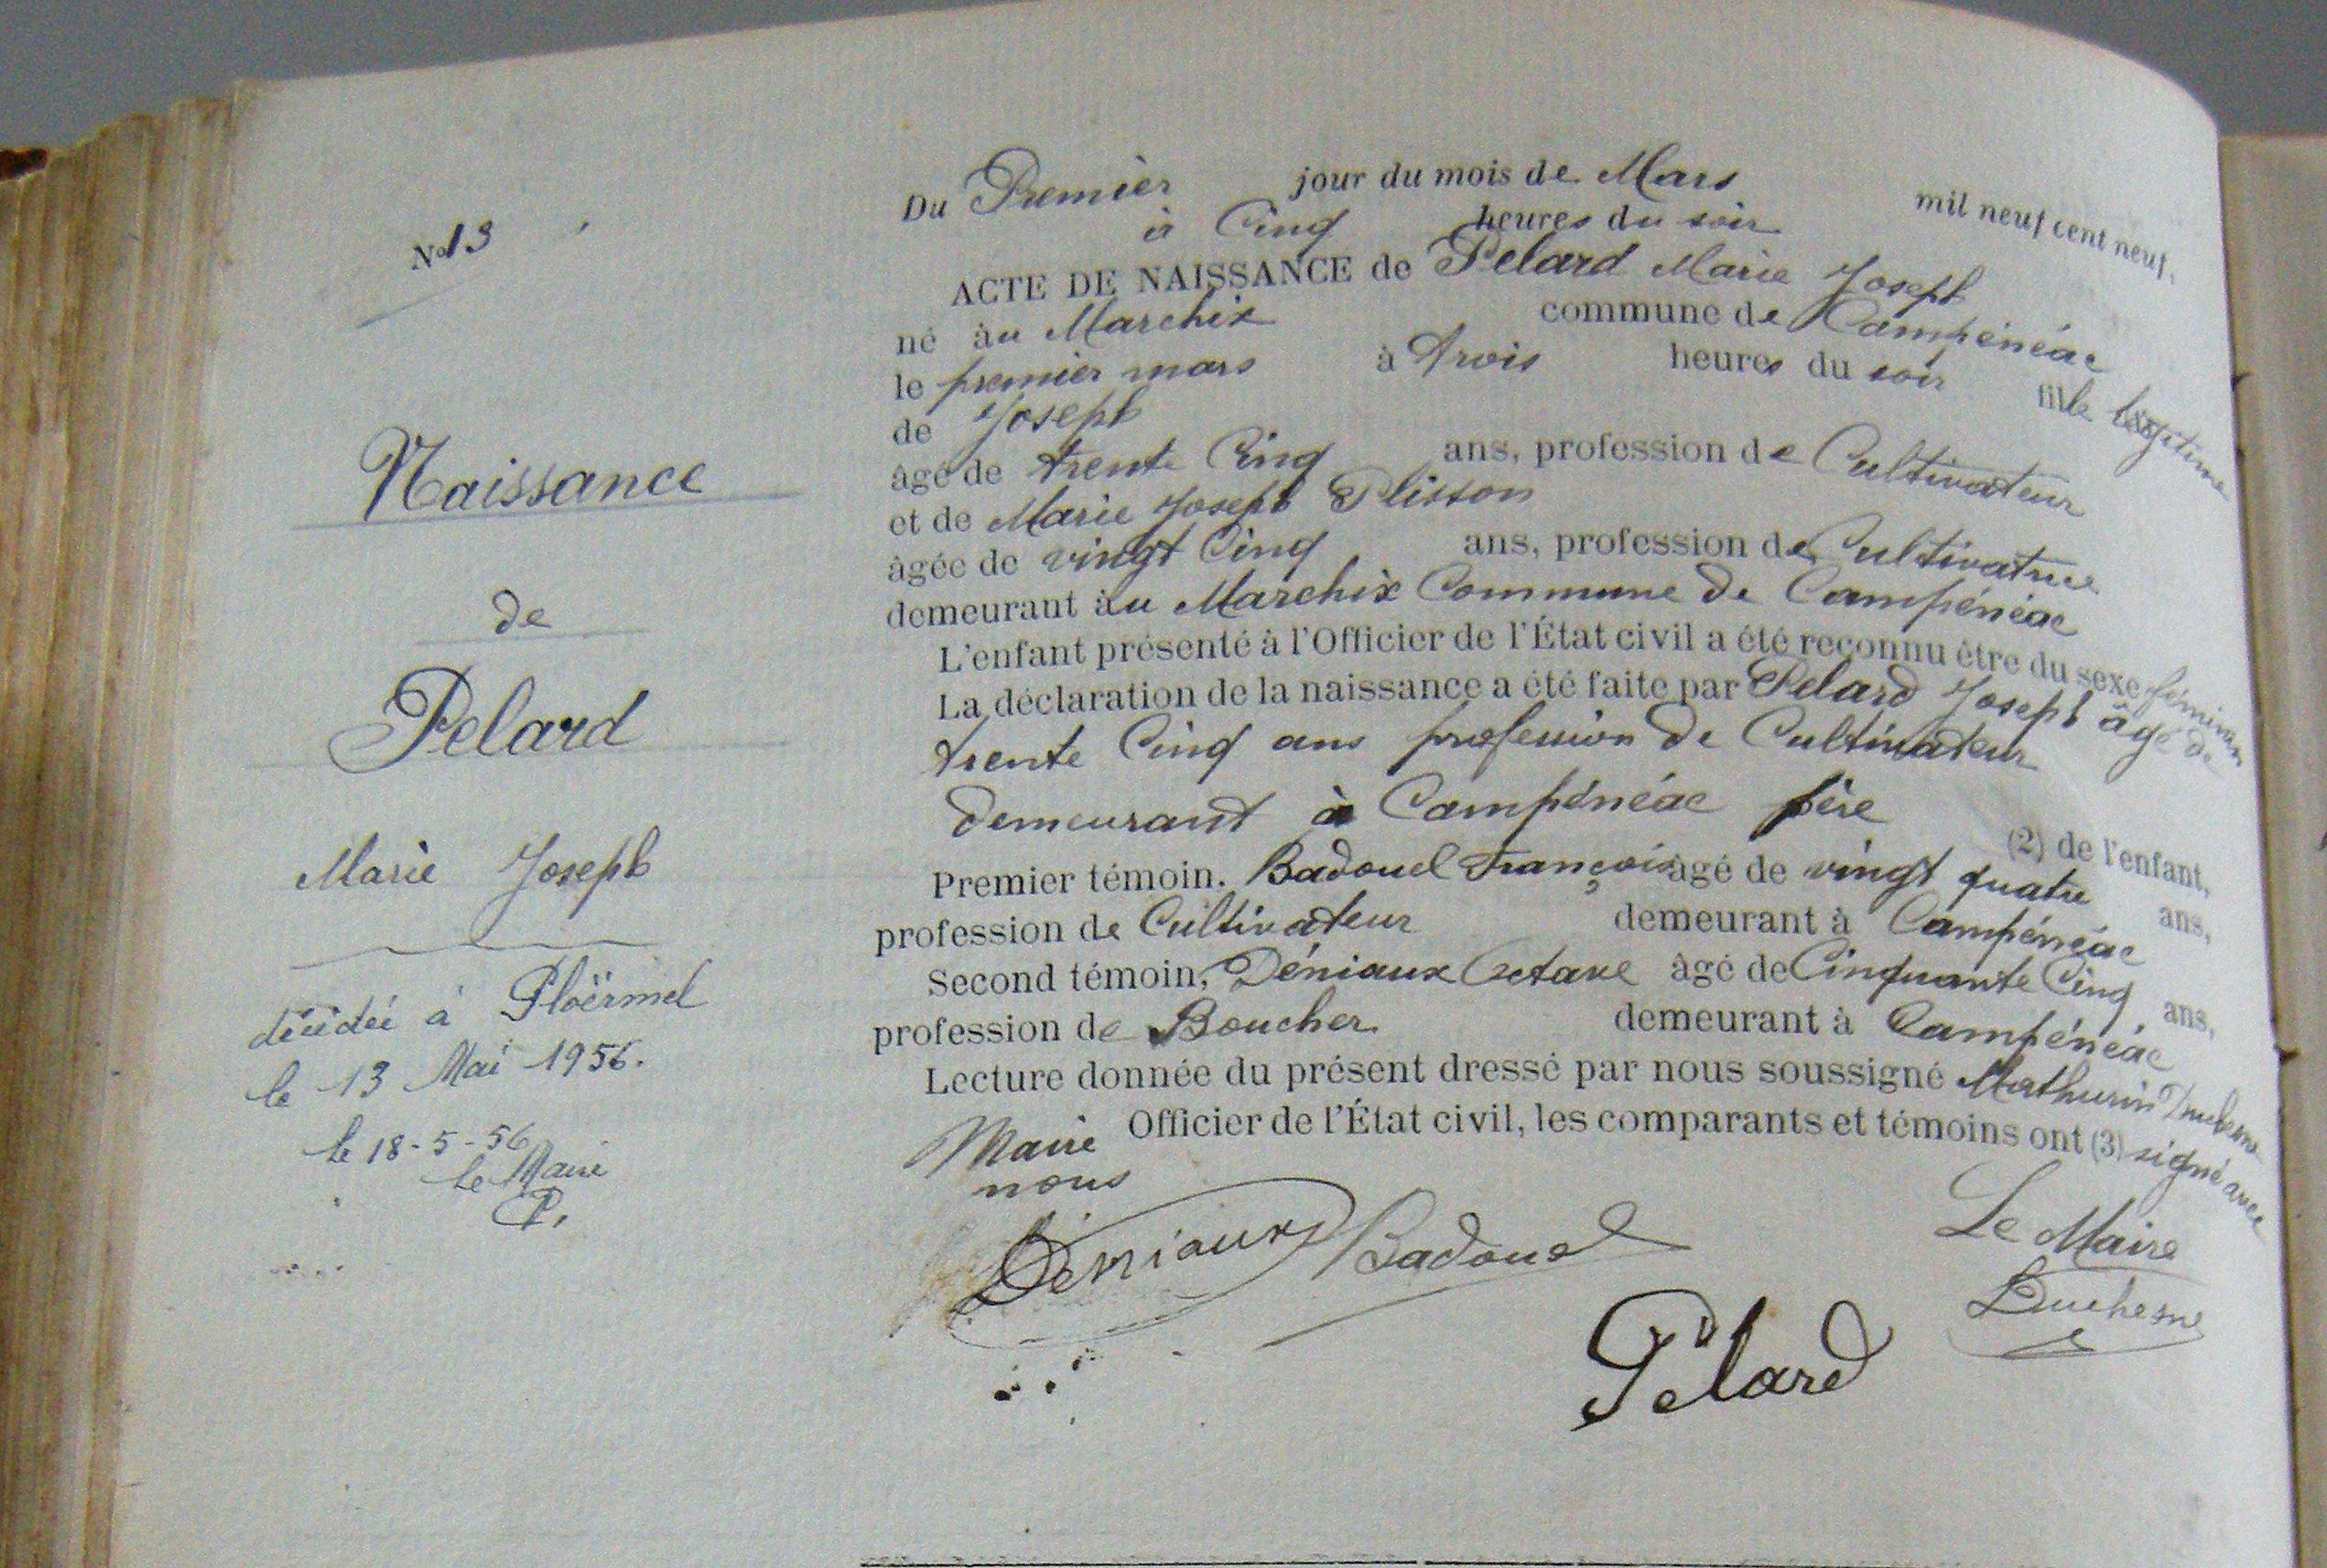 No 13
Naissance
de
Pelard
Marie Joseph
décédée à Ploërmel
le 13 Mai 1956.
le 18-5-56
Le Maire
P.
Du Premier jour du mois de Mars mil neuf cent neuf,
à Cinq heures du soir
ACTE DE NAISSANCE de Pelard Marie Joseph
né àu Marchix commune de Campénéac
le premier mars à trois heures du soir fille légitime
de Joseph
âgé de trente Cinq ans, profession de Cultivateur
et de Marie Joseph Plisson
âgée de vingt Cinq ans, profession de Cultivatrice
demeurant àu Marchix Commune de Campénéac
L'enfant présenté à l'Officier de l'État civil a été reconnu être du sexe féminin
La déclaration de la naissance a été faite par Pelard Joseph âgé de
trente Cinq ans profession de Cultivateur
demeurant à Campénéac père (2) de l'enfant,
Premier témoin. Badouel François âgé de vingt quatre ans,
profession de Cultivateur demeurant à Campénéac
Second témoin, Déniaux Octave âgé de Cinquante Cinq ans,
profession de Boucher demeurant à Campénéac
Lecture donnée du présent dressé par nous soussigné Mathurin Duchesne
Maire Officier de l'État civil, les comparants et témoins ont (3) signé avec
nous
Déniaux Badouel Le Maire
Duchesne
Pelard